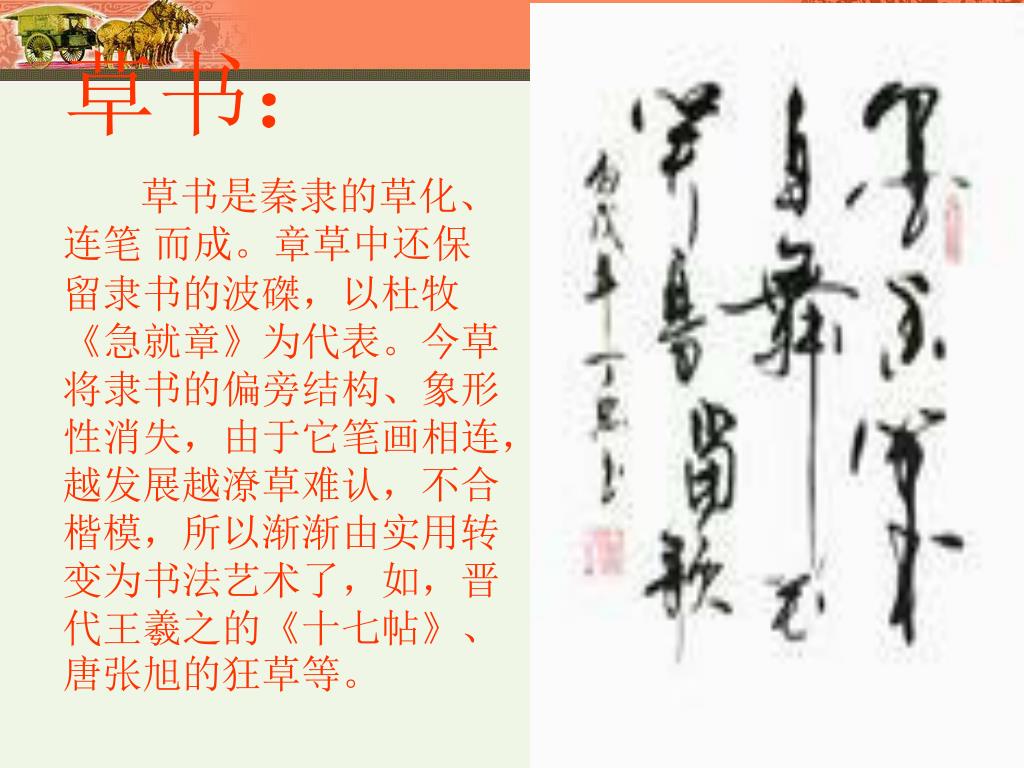 草书：
草书是秦隶的草化、
连笔 而成。章草中还保
留隶书的波磔，以杜牧
《急就章》为代表。今草
将隶书的偏旁结构、象形
性消失，由于它笔画相连，
越发展越潦草难认，不合
楷模，所以渐渐由实用转
变为书法艺术了，如，晋
代王羲之的《十七帖》、
唐张旭的狂草等。